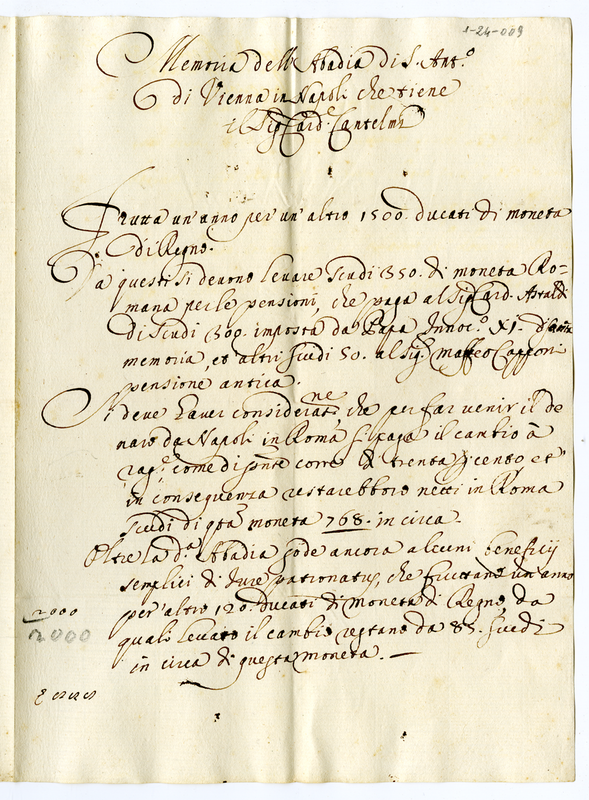 1-24-009
Memoria dell'Abadia di S. Ant.o
di Vienna in Napoli che tiene
il Sig.r Card.e Cantelmi
Frutta un'anno per un'altro 1500. ducati di moneta
di Regno.
Da questi si devono levare scudi 350. di moneta Ro-
mana per le pensioni, che paga al Sig.r Card. Astalli
di scudi 300. imposta da Papa Innoc.o XI. di
memoria, et altri scudi 50. al Sig.r Maffeo Capponi
pensione antica.
Si deve haver considerat.ne, che per far venir il de
naro da Napoli in Roma si paga il cambio à
rag.e come di pnte corre di trenta p cento, et
in consequenza restarebbero netti in Roma
scudi di qta moneta 768. in circa.
Oltre la d.a Abadia gode ancora alcuni beneficij
semplici di Jure patronatus, che fruttano un anno
per altro 120. Ducati di moneta di Regno, da
quali levato il cambio restano da 85. scudi
in circa di questa moneta. —
2000
2000